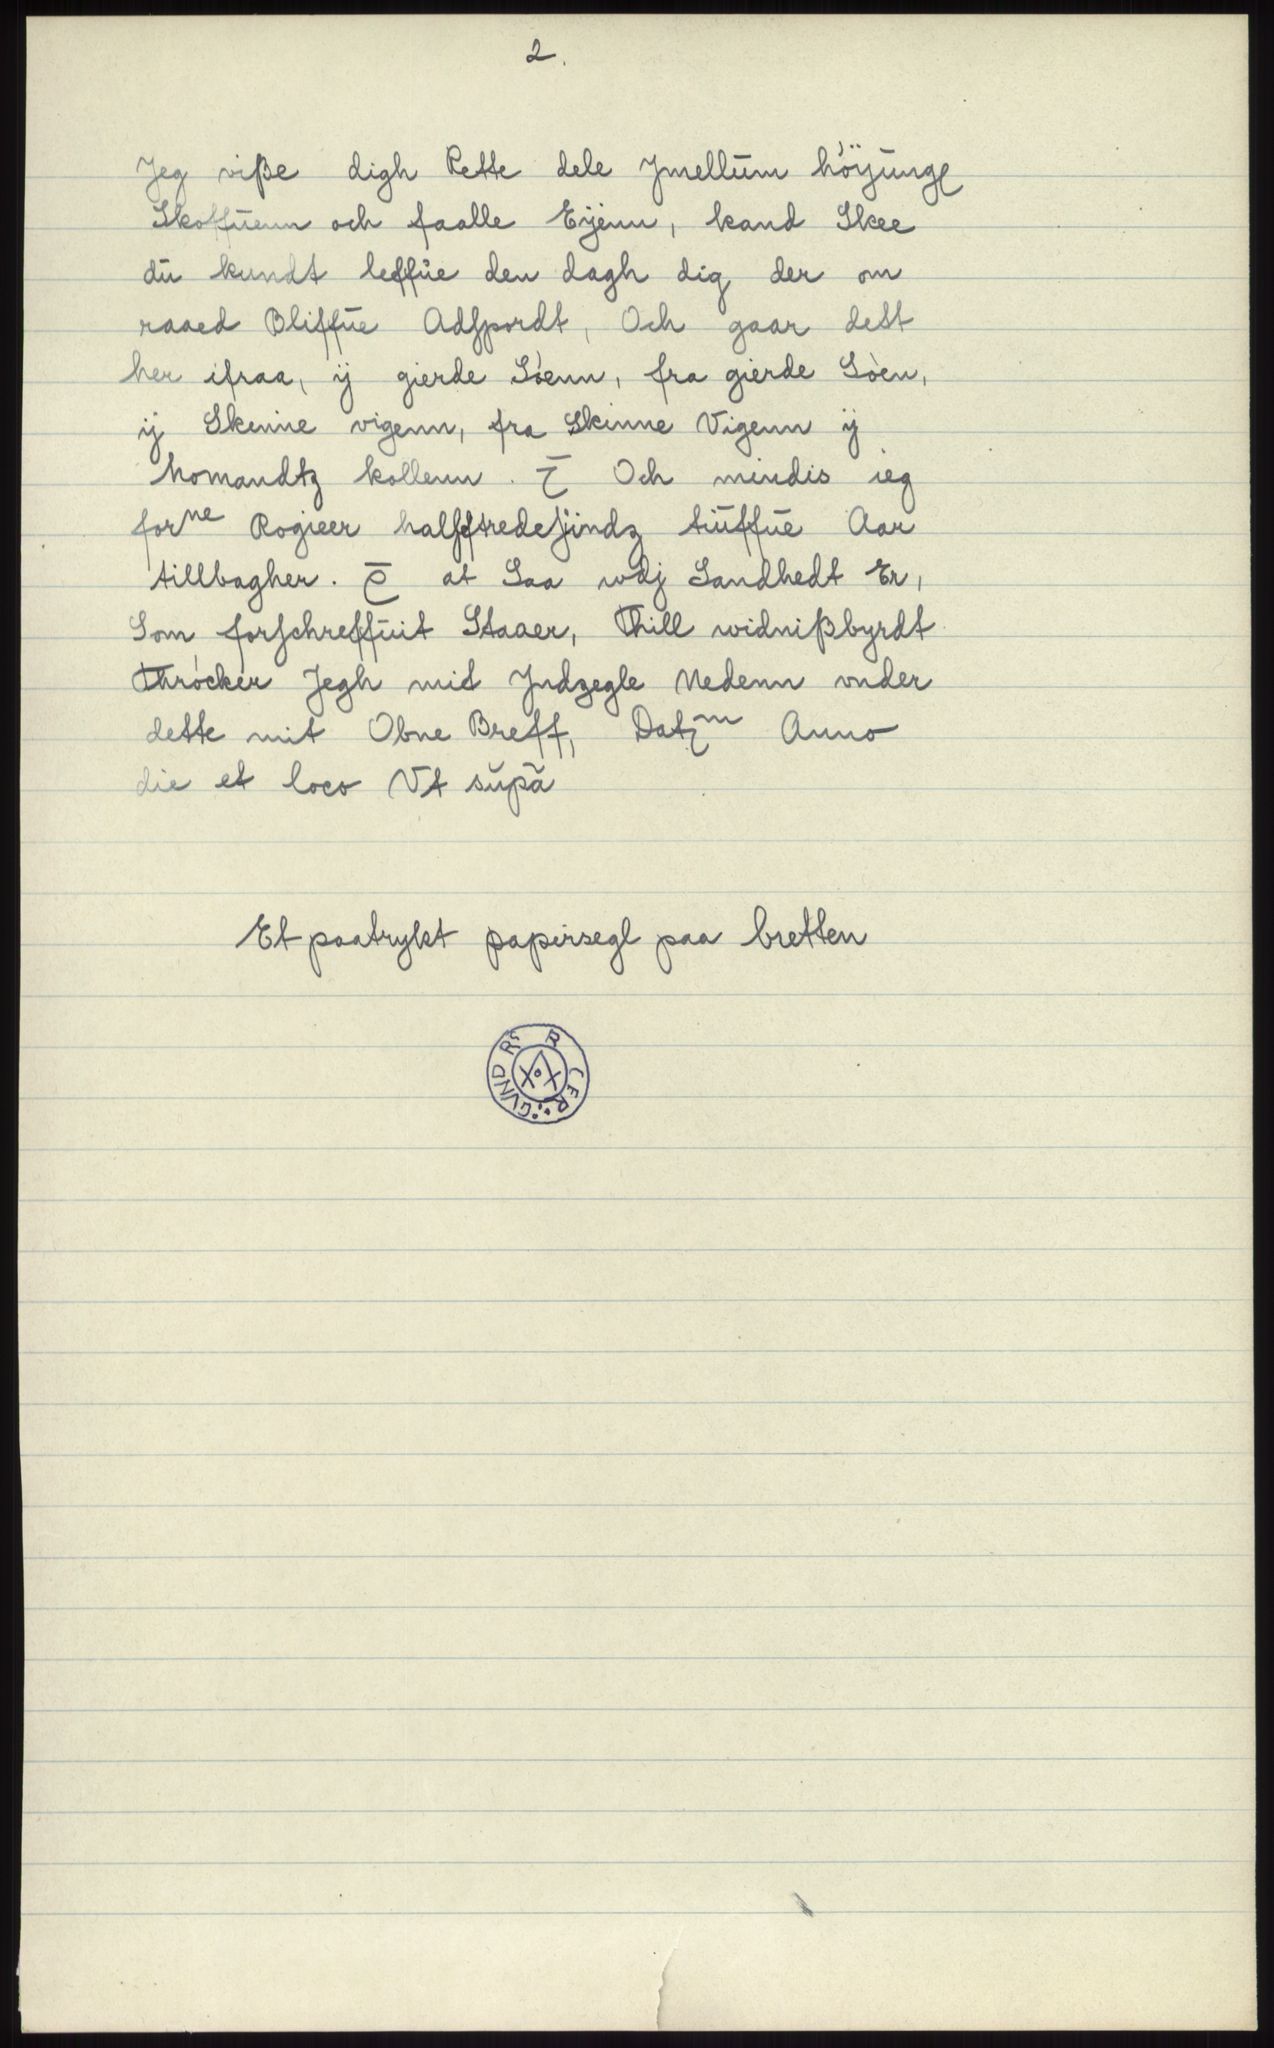 2.
Jeg viße digh Rette dele Jmellŭm höÿŭnge
Skoffŭenn och faalle Eÿenn, kand Skee
dŭ kundt leffŭe den dagh dig der om
raaed Bliffŭe Adspordt, Och gaar dett
her ifraa, ÿ gierde Sóenn, fra gierde Sóen,
ÿ Skinne vigenn, fra Skinne Vigenn ÿ
homandtz kollenn. Och mindis ieg
forne Rogieer halfftredesindz tiŭffŭe Aar
tillbagher. at Saa wdj Sandhedt Er,
Som forschreffŭit Staaer, Thill widnißbyrdt
Thrócker Jegh mit Jndzegle Nedenn vnder
dette mit Obne Breff, Datm Anno
die et loco Vt sŭpã
Et paatrykt papirsegl paa bretten
GVND RS B CER